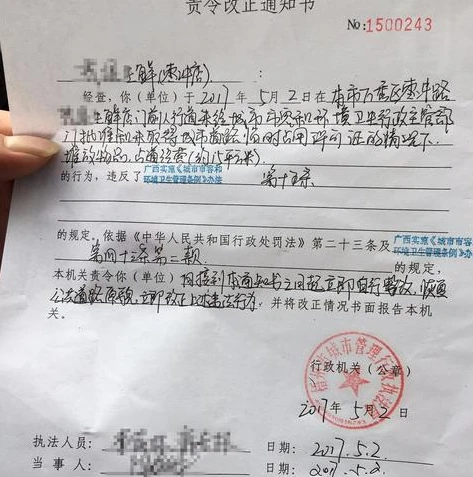 责令改正通知书
No:1500243
生鲜(枣冲店) ：
经查，你（单位）于2017年5月2日在本市万秀区枣冲路
生鲜店门前人行道未经城市市容和环境卫生行政主管部
门批准和未取得城市道路临时占用许可证的情况下
堆放物品占道经营(约15平方米)
的行为，违反了广西实施《城市市容和环境卫生管理条例》办法 第十五条
的规定，依据《中华人民共和国行政处罚法》第二十三条及广西实施《城市市容环境卫生管理条例》办法
第四十三条第二款 的规定，
本机关责令你（单位）自接到本通知书之日起立即自行整改，恢复
公共道路原貌，立即改正上述违法行为，并将改正情况书面报告本机
关。
行政机关（公章）
2017年5月2日
执法人员： 日期：2017.5.2
当事人： 日期：2017.5.2